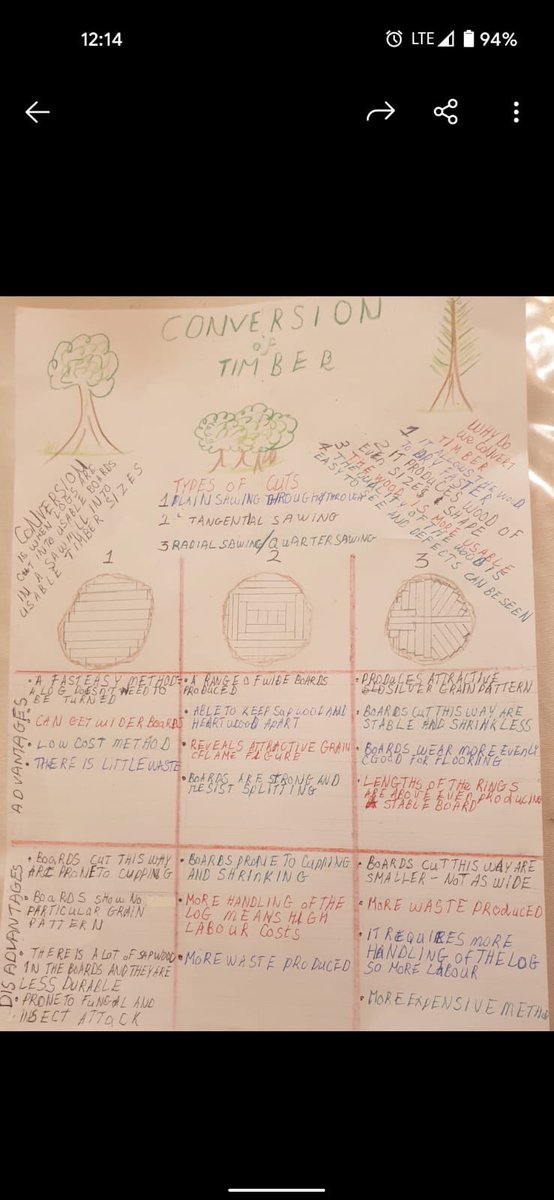 12:14
LTE
94%
CONVERSION
OF
TIMBER
CONVERSION
IS WHEN LOGS ARE
CUT INTO USABLE BOARDS
IN A SAWMILL INTO
USABLE TIMBER SIZES
TYPES OF CUTS
1 PLAIN SAWING THROUGH & THROUGH
2 TANGENTIAL SAWING
3 RADIAL SAWING/QUARTERSAWING
WHY DO
WE CONVERT
TIMBER
1 IT ALLOWS THE WOOD
TO DRY FASTER
2 IT PRODUCES WOOD OF
EVEN SIZES & SHAPE
3 THE WOOD IS MORE USABLE
4 THE QUALITY OF THE WOOD IS
EASY TO SEE AND DEFECTS CAN BE SEEN
1
2
3
ADVANTAGES
• A FAST EASY METHOD
A LOG DOESN'T NEED TO
BE TURNED
• CAN GET WIDER BOARDS
• LOW COST METHOD
• THERE IS LITTLE WASTE
• A RANGE OF WIDE BOARDS
PRODUCED
• ABLE TO KEEP SAPWOOD AND
HEARTWOOD APART
• REVEALS ATTRACTIVE GRAIN
FLAME FIGURE
• BOARDS ARE STRONG AND
RESIST SPLITTING
• PRODUCES ATTRACTIVE
SILVER GRAIN PATTERN
• BOARDS CUT THIS WAY ARE
STABLE AND SHRINK LESS
• BOARDS WEAR MORE EVENLY
GOOD FOR FLOORING
• LENGTHS OF THE RINGS
ARE ABOVE EVEN PRODUCING
A STABLE BOARD
DISADVANTAGES
• BOARDS CUT THIS WAY
ARE PRONE TO CUPPING
• BOARDS SHOW NO
PARTICULAR GRAIN
PATTERN
• THERE IS A LOT OF SAPWOOD
IN THE BOARDS AND THEY ARE
LESS DURABLE
• PRONE TO FUNGAL AND
INSECT ATTACK
• BOARDS PRONE TO CUPPING
AND SHRINKING
• MORE HANDLING OF THE
LOG MEANS HIGH
LABOUR COSTS
• MORE WASTE PRODUCED
• BOARDS CUT THIS WAY ARE
SMALLER - NOT AS WIDE
• MORE WASTE PRODUCED
• IT REQUIRES MORE
HANDLING OF THE LOG
SO MORE LABOUR
• MORE EXPENSIVE METHOD